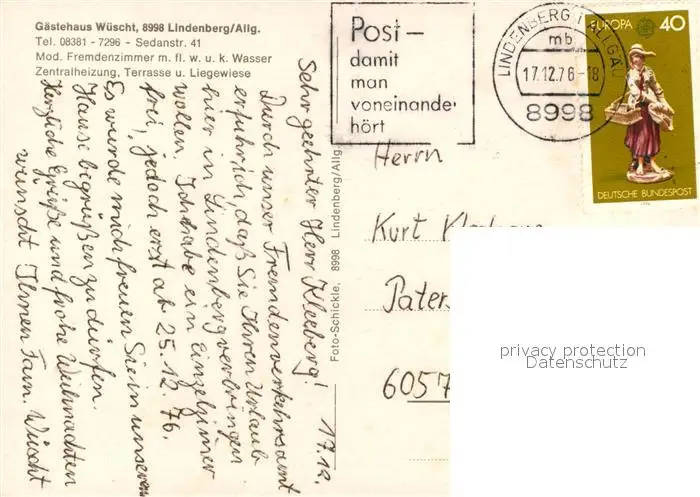 Gästehaus Wüscht, 8998 Lindenberg/Allg.
Tel. 08381 - 7296 - Sedanstr. 41
Mod. Fremdenzimmer m. fl. w. u. k. Wasser
Zentralheizung, Terrasse u. Liegewiese
17.12.
Sehr geehrter Herr Kleeberg!
Durch unser Fremdenverkehrsamt
erfuhr ich, daß Sie Ihren Urlaub
hier in Lindenberg verbringen
wollen. Ich habe ein Einzelzimer
frei, jedoch erst ab 25.12.76.
Es würde mich freuen Sie in unserem
Hause begrüßen zu dürfen.
Herzliche Grüße und frohe Weihnachten
wünscht Ihnen Fam. Wüscht
Foto-Schickle, 8998 Lindenberg/Allg.
Post –
damit
man
voneinander
hört
LINDENBERG I ALLGÄU
mb
17.12.76-18
8998
EUROPA 40
DEUTSCHE BUNDESPOST
Herrn
Kurt
Pater
6057
privacy protection
Datenschutz